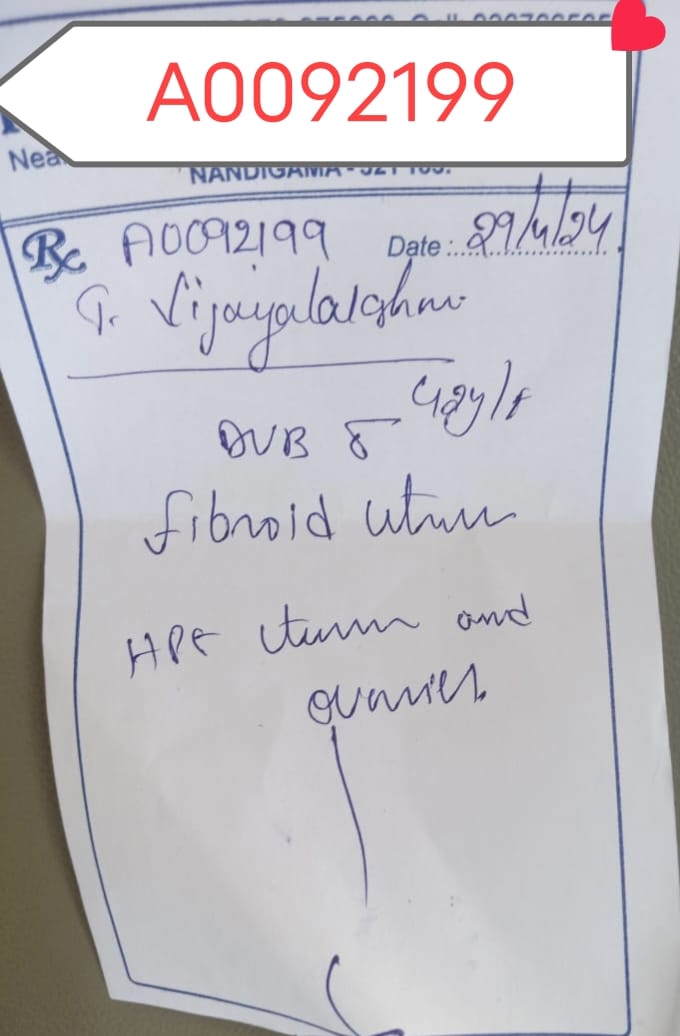 A0092199
Nea
NANDIGAMA - 521 185.
Rx A0092199 Date : 29/4/24
T. Vijayalakshmi
42y/f
DUB c
fibroid uterus
HPE uterus and
ovaries